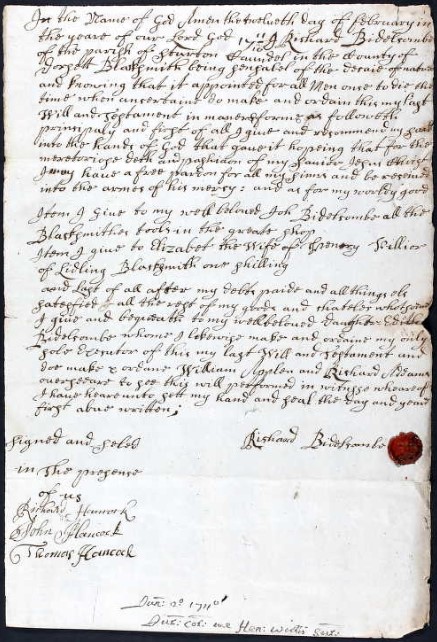 In the Name of God Amen the twelveth day of february in
the yeare of our Lord God 1711/10 I Richard Bidelcombe
of the parish of Sturton Caundel in the County of
Dorsett Blacksmith being sencabel of the decaie of nature
and knowing that it appointed for all Men once to die the
time when uncertaine do make and ordain this my last
Will and Testament in maner & forme as followeth
principaly and first of all I give and recommend my soul
into the hands of God that gave it hopeing that for the
meretorious deth and passhion of my Savior Jesus Christ
I may have a free pardon for all my sinns and be received
into the armes of his mercy: and as for my worldly good
Item I give to my well beloved Joh Bidelcombe all the
Blacksmithes tools in the greate shop
Item I give to Elizabet the Wife of Willier
of Lidling Blacksmith one shilling
and Last of all after my debts paide and all things els
satesfied all the rest of my goods and chatteles whatsoever
I give and bequeath to my wellbeloved daughter
Bidelcombe whome I likewise make and ordaine my only
sole executor of this my last Will and Testament and
doe make & ordane William Applen and Richard Adams
overseeare to see this will performed in witnesse wheare of
I have heareunto sett my hand and seal the day and yeare
first above written;
Signed and seled Richard Bidelcombe
in the presence
of us
Richard Hancock
John Hancock
Thomas Hancock
1710